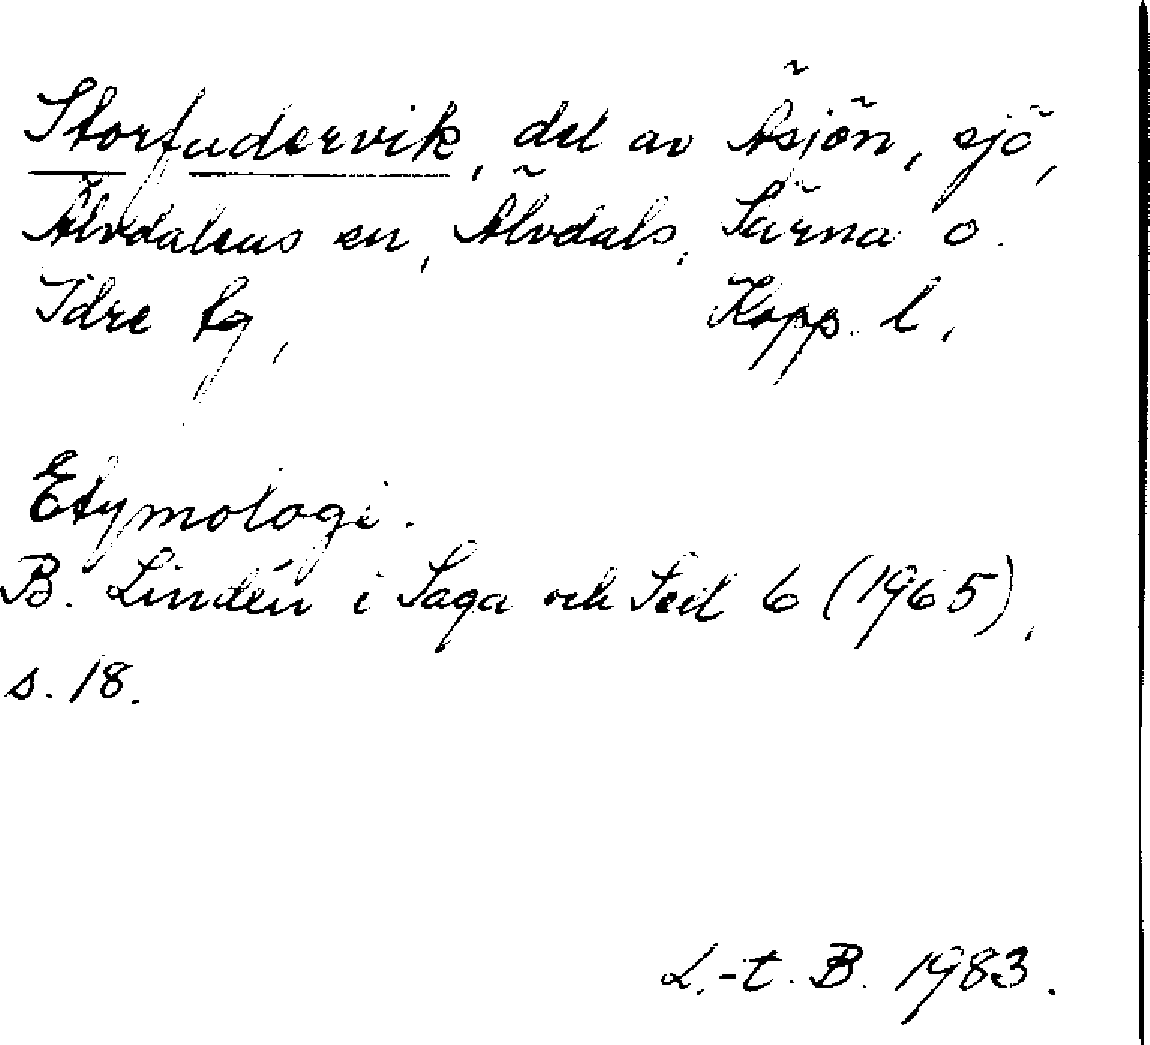 Storfudervik, del av Äsjön, sjö,
Älvdalens sn, Älvdals, Särna o.
Idre tg, Kopp. l.
Etymologi.
B. Lindén i Saga och Sed 6 (1965),
s. 18.
L.-t. B. 1983.